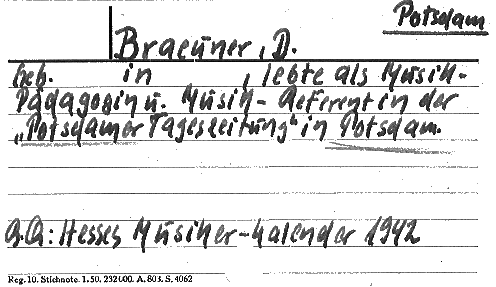 Potsdam
Braeuner, D.
Geb. in , lebte als Musik-
Pädagogin u. Musik-Referent in der
„Potsdamer Tageszeitung" in Potsdam.
Q.A.: Hesses Musiker-Kalender 1942
Reg. 10. Stichnote. 1. 50. 232000. A. 803. S. 4062